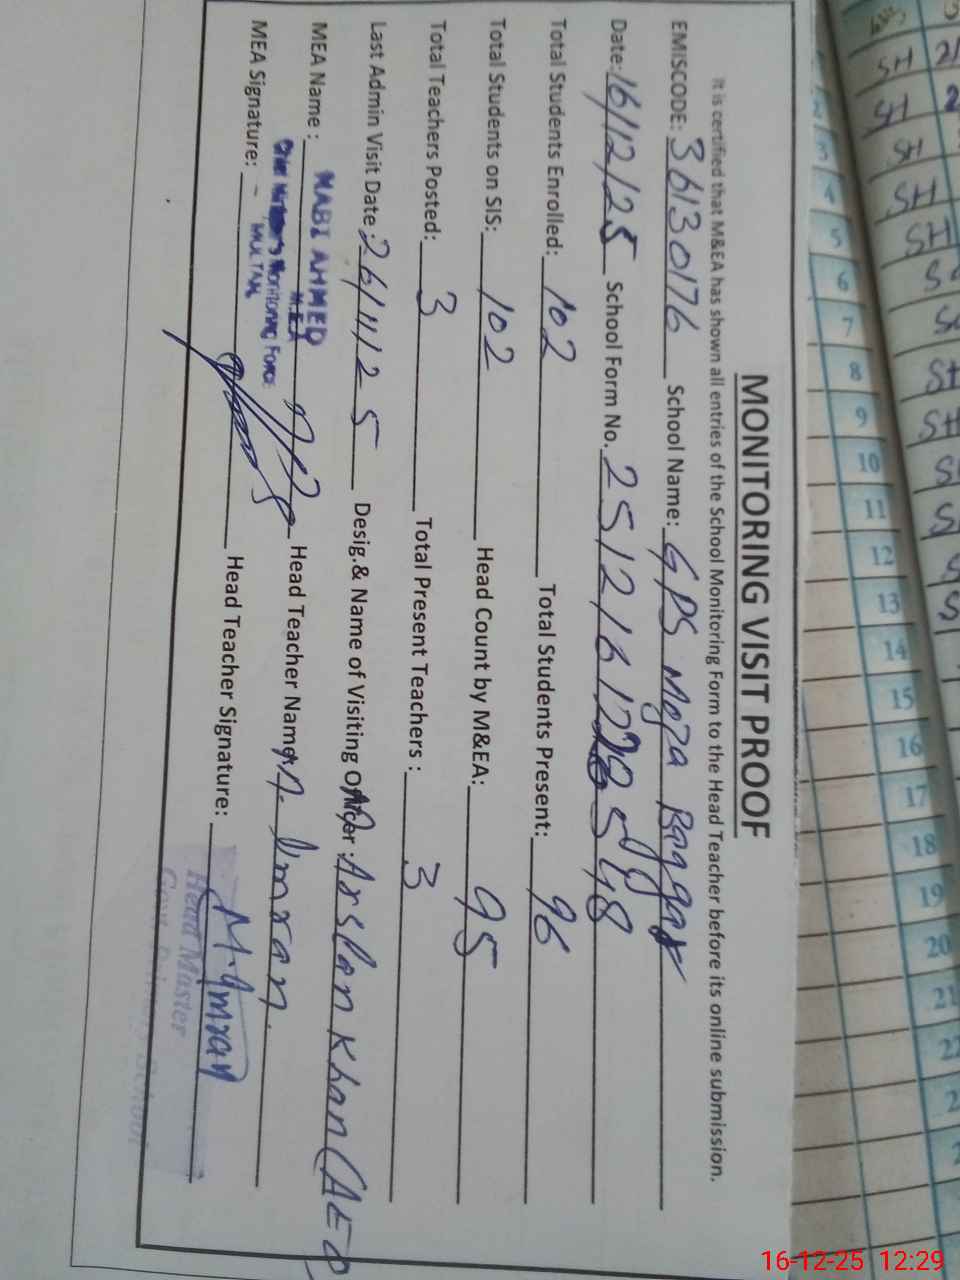 MONITORING VISIT PROOF
It is certified that M&EA has shown all entries of the School Monitoring Form to the Head Teacher before its online submission.
EMISCODE: 36130176 School Name: GPS Moza Baggar
Date: 16/12/25 School Form No.
Total Students Enrolled: 102 Total Students Present: 96
Total Students on SIS: 102 Head Count by M&EA: 95
Total Teachers Posted: 3 Total Present Teachers : 3
Last Admin Visit Date : 26/11/25 Desig.& Name of Visiting Officer : Arslan Khan (AEO
MEA Name : NABI AHMED Head Teacher Name: M. Imran.
M.E.A
Chief Minister's Monitoring Force
MULTAN
MEA Signature: Head Teacher Signature: M. Imran
Head Master
Govt. Primary School
SH
SH
SH
SH
SH
4
5
6
7
8
9
10
11
12
13
14
15
16
17
18
19
20
21
22
16-12-25 12:29